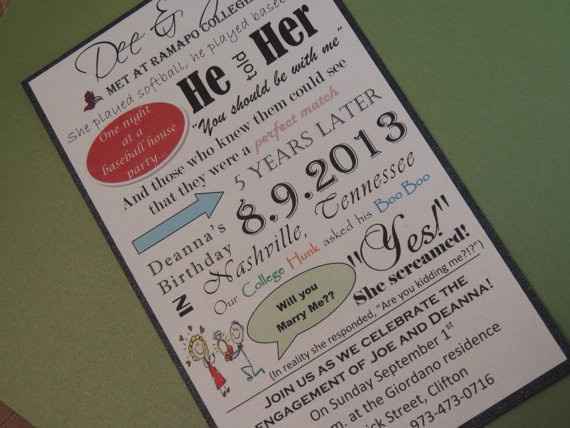 Dee &
MET AT RAMAPO COLLEGE
She played softball, he played base
One night
at a
baseball house
party...
He told Her
"You should be with me"
And those who knew them could see
that they were a perfect match
5 YEARS LATER
Deanna's
Birthday
8.9.2013
IN Nashville, Tennessee
Our College Hunk asked his Boo Boo
Will you
Marry Me??
"Yes!"
She screamed!
(In reality she responded, "Are you kidding me?!?")
JOIN US AS WE CELEBRATE THE
ENGAGEMENT OF JOE AND DEANNA!
On Sunday September 1st
.m. at the Giordano residence
ick Street, Clifton
973-473-0716